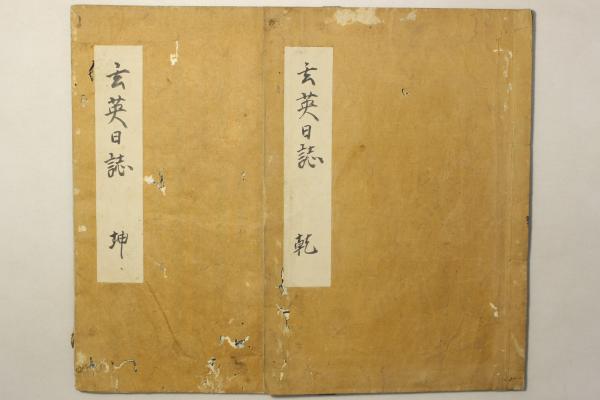 玄英日誌 乾
玄英日誌 坤